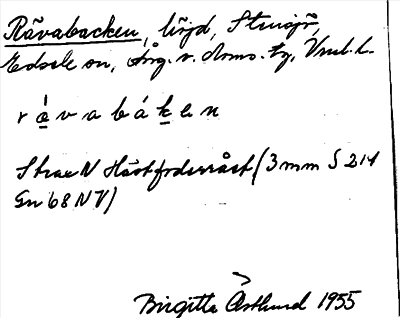 Rävabacken, höjd, Stensjö,
Edsele sn, Ång. v. doms. tg, Vnl. l.
r ä v a b á k e n
Strax N Hästfoderråst (3 mm S 214
Gn 68 NV)
Birgitta Östlund 1955